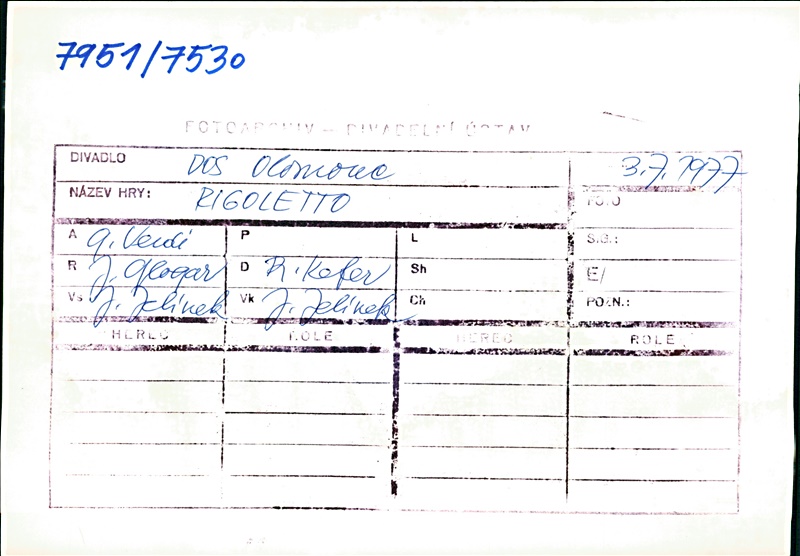 7951/7530
FOTOARCHIV – DIVADELNÍ ÚSTAV
DIVADLO DOS Olomouc 3.7.1977
NÁZEV HRY: RIGOLETTO FOTO
A G. Verdi P L S.G.:
R J. Glogar D R. Kefer Sh E/
Vs J. Jelínek Vk J. Jelínek Ch POZN.:
HEREC ROLE HEREC ROLE